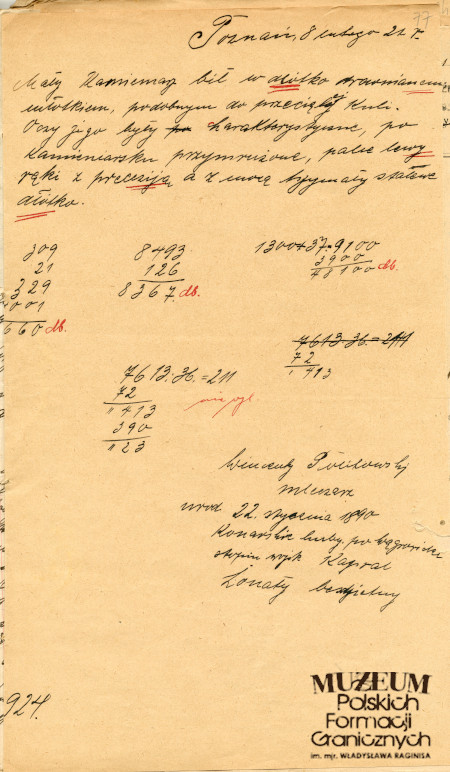 77
Poznań, 8 lutego 21 r.
Mały Kamieniarz bił w dłótko
młotkiem, podobnym do przeciętej kuli.
Oczy jego były charakterystyczne, po
kamieniarsku przymrużone, palce lewy
ręki z precezija a z mocą trzymały stalowe
dłótko.
309
21
329
001
660 db.
8493
126
8367 db.
1300+37=9100
3900
48100 db.
7613:36.=211
72
413
7613:36.=211
72
413
390
23
Wincenty
mleczarz
urod. 22. stycznia 1890
stopień wojsk. Kapral
Żonaty bezdzietny
924.
MUZEUM
Polskich
Formacji
Granicznych
im. mjr. WŁADYSŁAWA RAGINISA